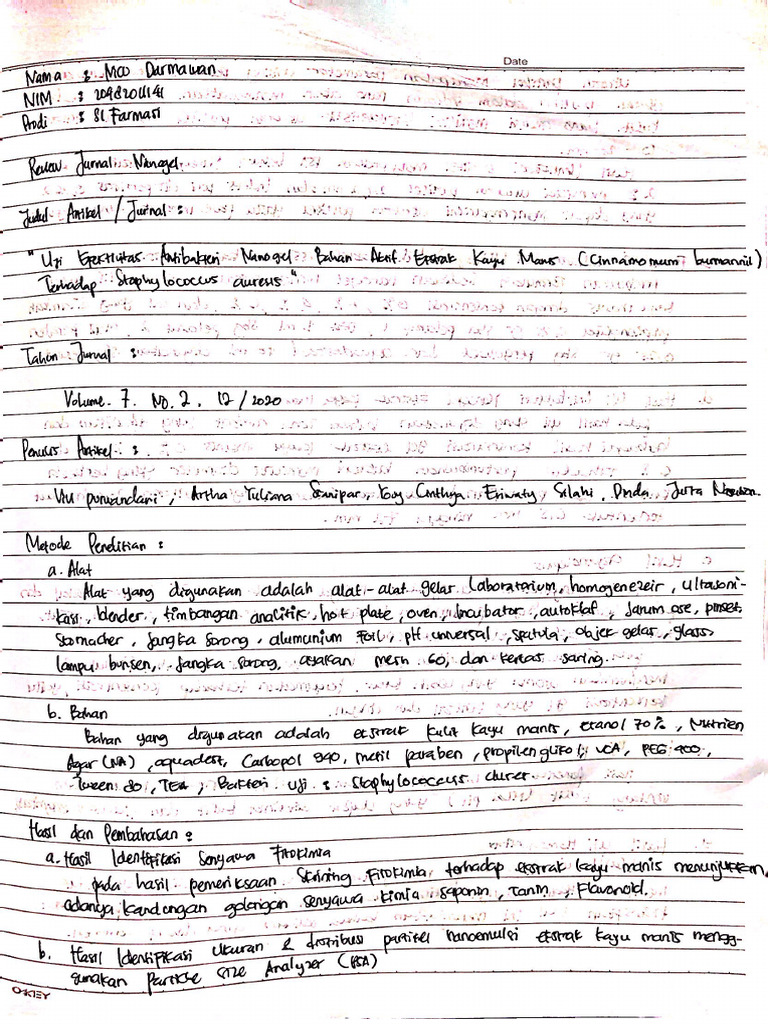 Date
Nama : MCO Darmawan
NIM : 20482011141
Prodi : S1. Farmasi
Review Jurnal Nanogel
Judul Artikel / Jurnal :
" Uji Efektivitas Antibakteri Nanogel Bahan Aktif Ekstrak Kayu Manis (Cinnamomum burmannii)
Terhadap Staphylococcus aureus "
Tahun Jurnal :
Volume. 7. No. 2. 12 / 2020
Penulis Artikel :
Vivi purwandari, Artha Yuliana Sianipar, Cinthya Eriwaty Silahi,
Metode Penelitian :
a. Alat
Alat yang digunakan adalah alat-alat gelas laboratorium, homogenezeir, ultasoni-
kasi, blender, timbangan analitik, hot plate, oven, Incubator, autoklaf, Jarum ose, pinset,
Stomacher, Jangka Sorong, alumunium Foil, pH universal, spatula, objek gelas, glass,
lampu bunsen, Jangka sorong, ayakan mesh 60, dan kertas saring.
b. Bahan
Bahan yang digunakan adalah ekstrak kulit kayu manis, etanol 70%, Nutrien
Agar (NA), aquadest, Carbopol 940, metil paraben, propilen glikol, VCA, PEG 400,
Tween 80, TEA, Bakteri uji : Staphylococcus aurer.
Hasil dan Pembahasan :
a. Hasil Identifikasi Senyawa Fitokimia
pada hasil pemeriksaan Skrining Fitokimia terhadap ekstrak kayu manis menunjukkan
adanya kandungan golongan senyawa kimia saponin, Tanin, Flavonoid.
b. Hasil Identifikasi Ukuran & distribusi partikel nanoemulsi ekstrak kayu manis mengg-
gunakan Particle size Analyzer (PSA)
OKEY